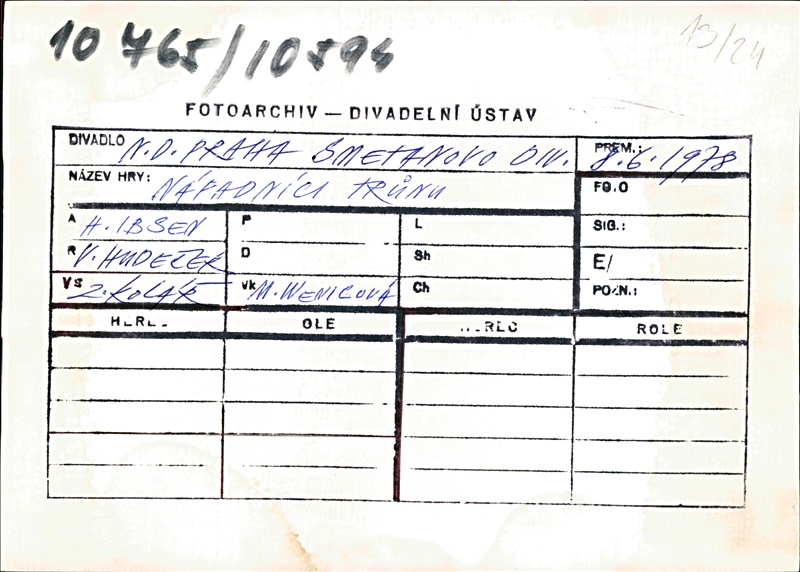 10 765/10594
13/24
FOTOARCHIV — DIVADELNÍ ÚSTAV
DIVADLO N.D. PRAHA SMETANOVO DIV. PREM.: 8.6.1978
NÁZEV HRY: NÁPADNÍCI TRŮNU FO.O
A H. IBSEN P L SIG.:
R V. HUDEČEK D Sh E/
VS Z. KOLÁŘ Vk M. WENIGOVÁ Ch POZN.:
ROLE